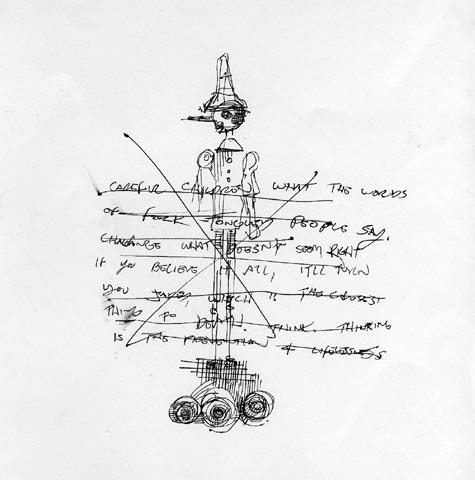 CAREFUL CHILDREN WHAT THE WORDS
OF FORK TONGUED PEOPLE SAY.
CHALLENGE WHAT DOESN'T SEEM RIGHT
IF YOU BELIEVE IT ALL, IT'LL TURN
YOU JADED, WHICH IS THE CLOSEST
THING TO DEATH. THINK. THINKING
IS THE PREVENTION OF LIFELESSNESS